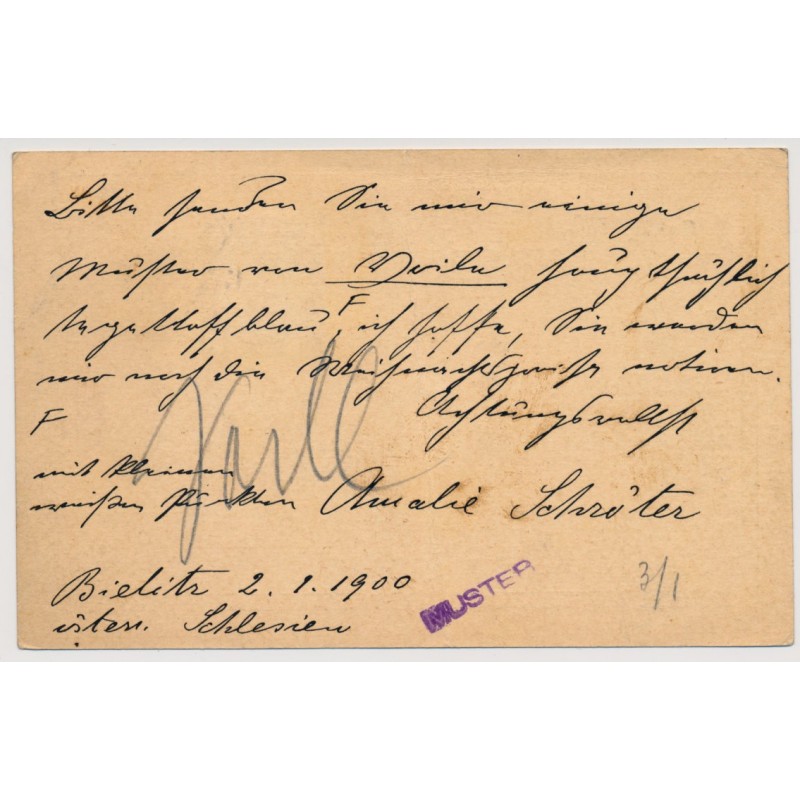 Bitte senden Sie mir einige
Muster von Voile hauptsächlich
 blau F, ich hoffe, Sie werden
mir noch die Weihnachtspreise notiren.
Achtungsvollst
F
mit kleinen
weißen Punkten Amalie Schröter
Bielitz 2. 1. 1900
österr. Schlesien
MUSTER
3/1